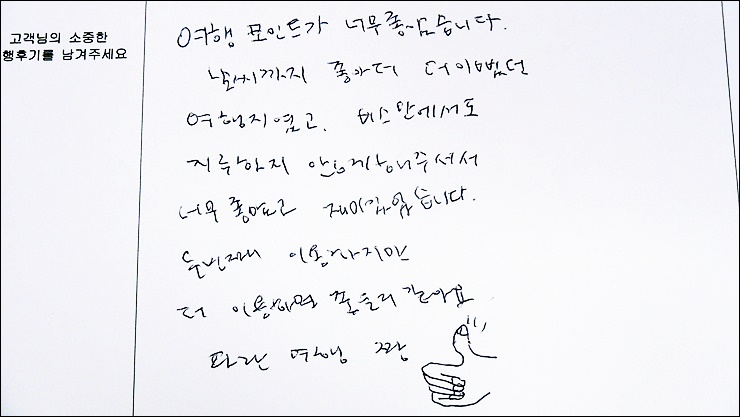 고객님의 소중한
행후기를 남겨주세요
여행 포인트가 너무좋았습니다.
날씨까지 좋아더 더 이뻤던
여행지였고. 버스안에서도
지루하지 않게 해주셔서
너무 좋았고 재미있었습니다.
두번째 이용하지만
더 이용하면 좋을거 같아요
파란 여행 짱